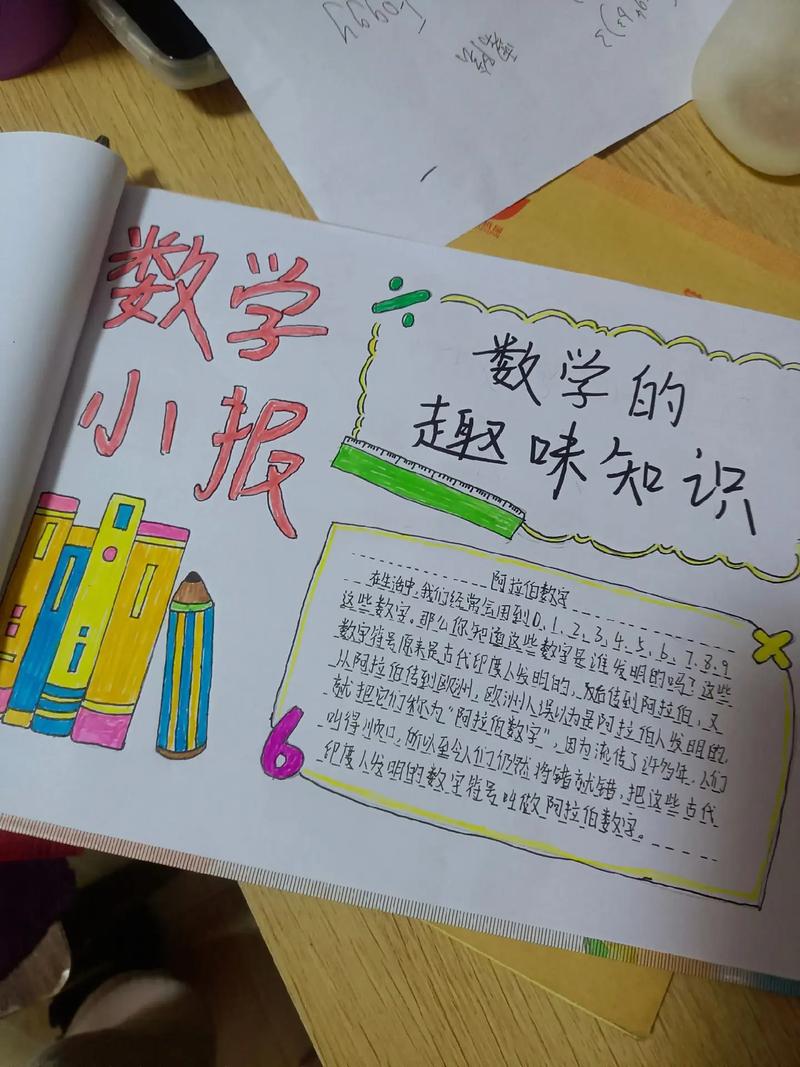 Foggy
数学
小报
数学的
趣味知识
阿拉伯数字
在生活中,我们经常会用到0、1、2、3、4、5、6、7、8、9
这些数字。那么你知道这些数字是谁发明的吗?这些
数字符号原来是古代印度人发明的,后面传到阿拉伯,又
从阿拉伯传到欧洲,欧洲人误以为是阿拉伯人发明的,
就把它们称为“阿拉伯数字”,因为流传了许多年,人们
叫得顺口,所以至今人们仍然将错就错,把这些古代
印度人发明的数字符号叫做阿拉伯数字。
6